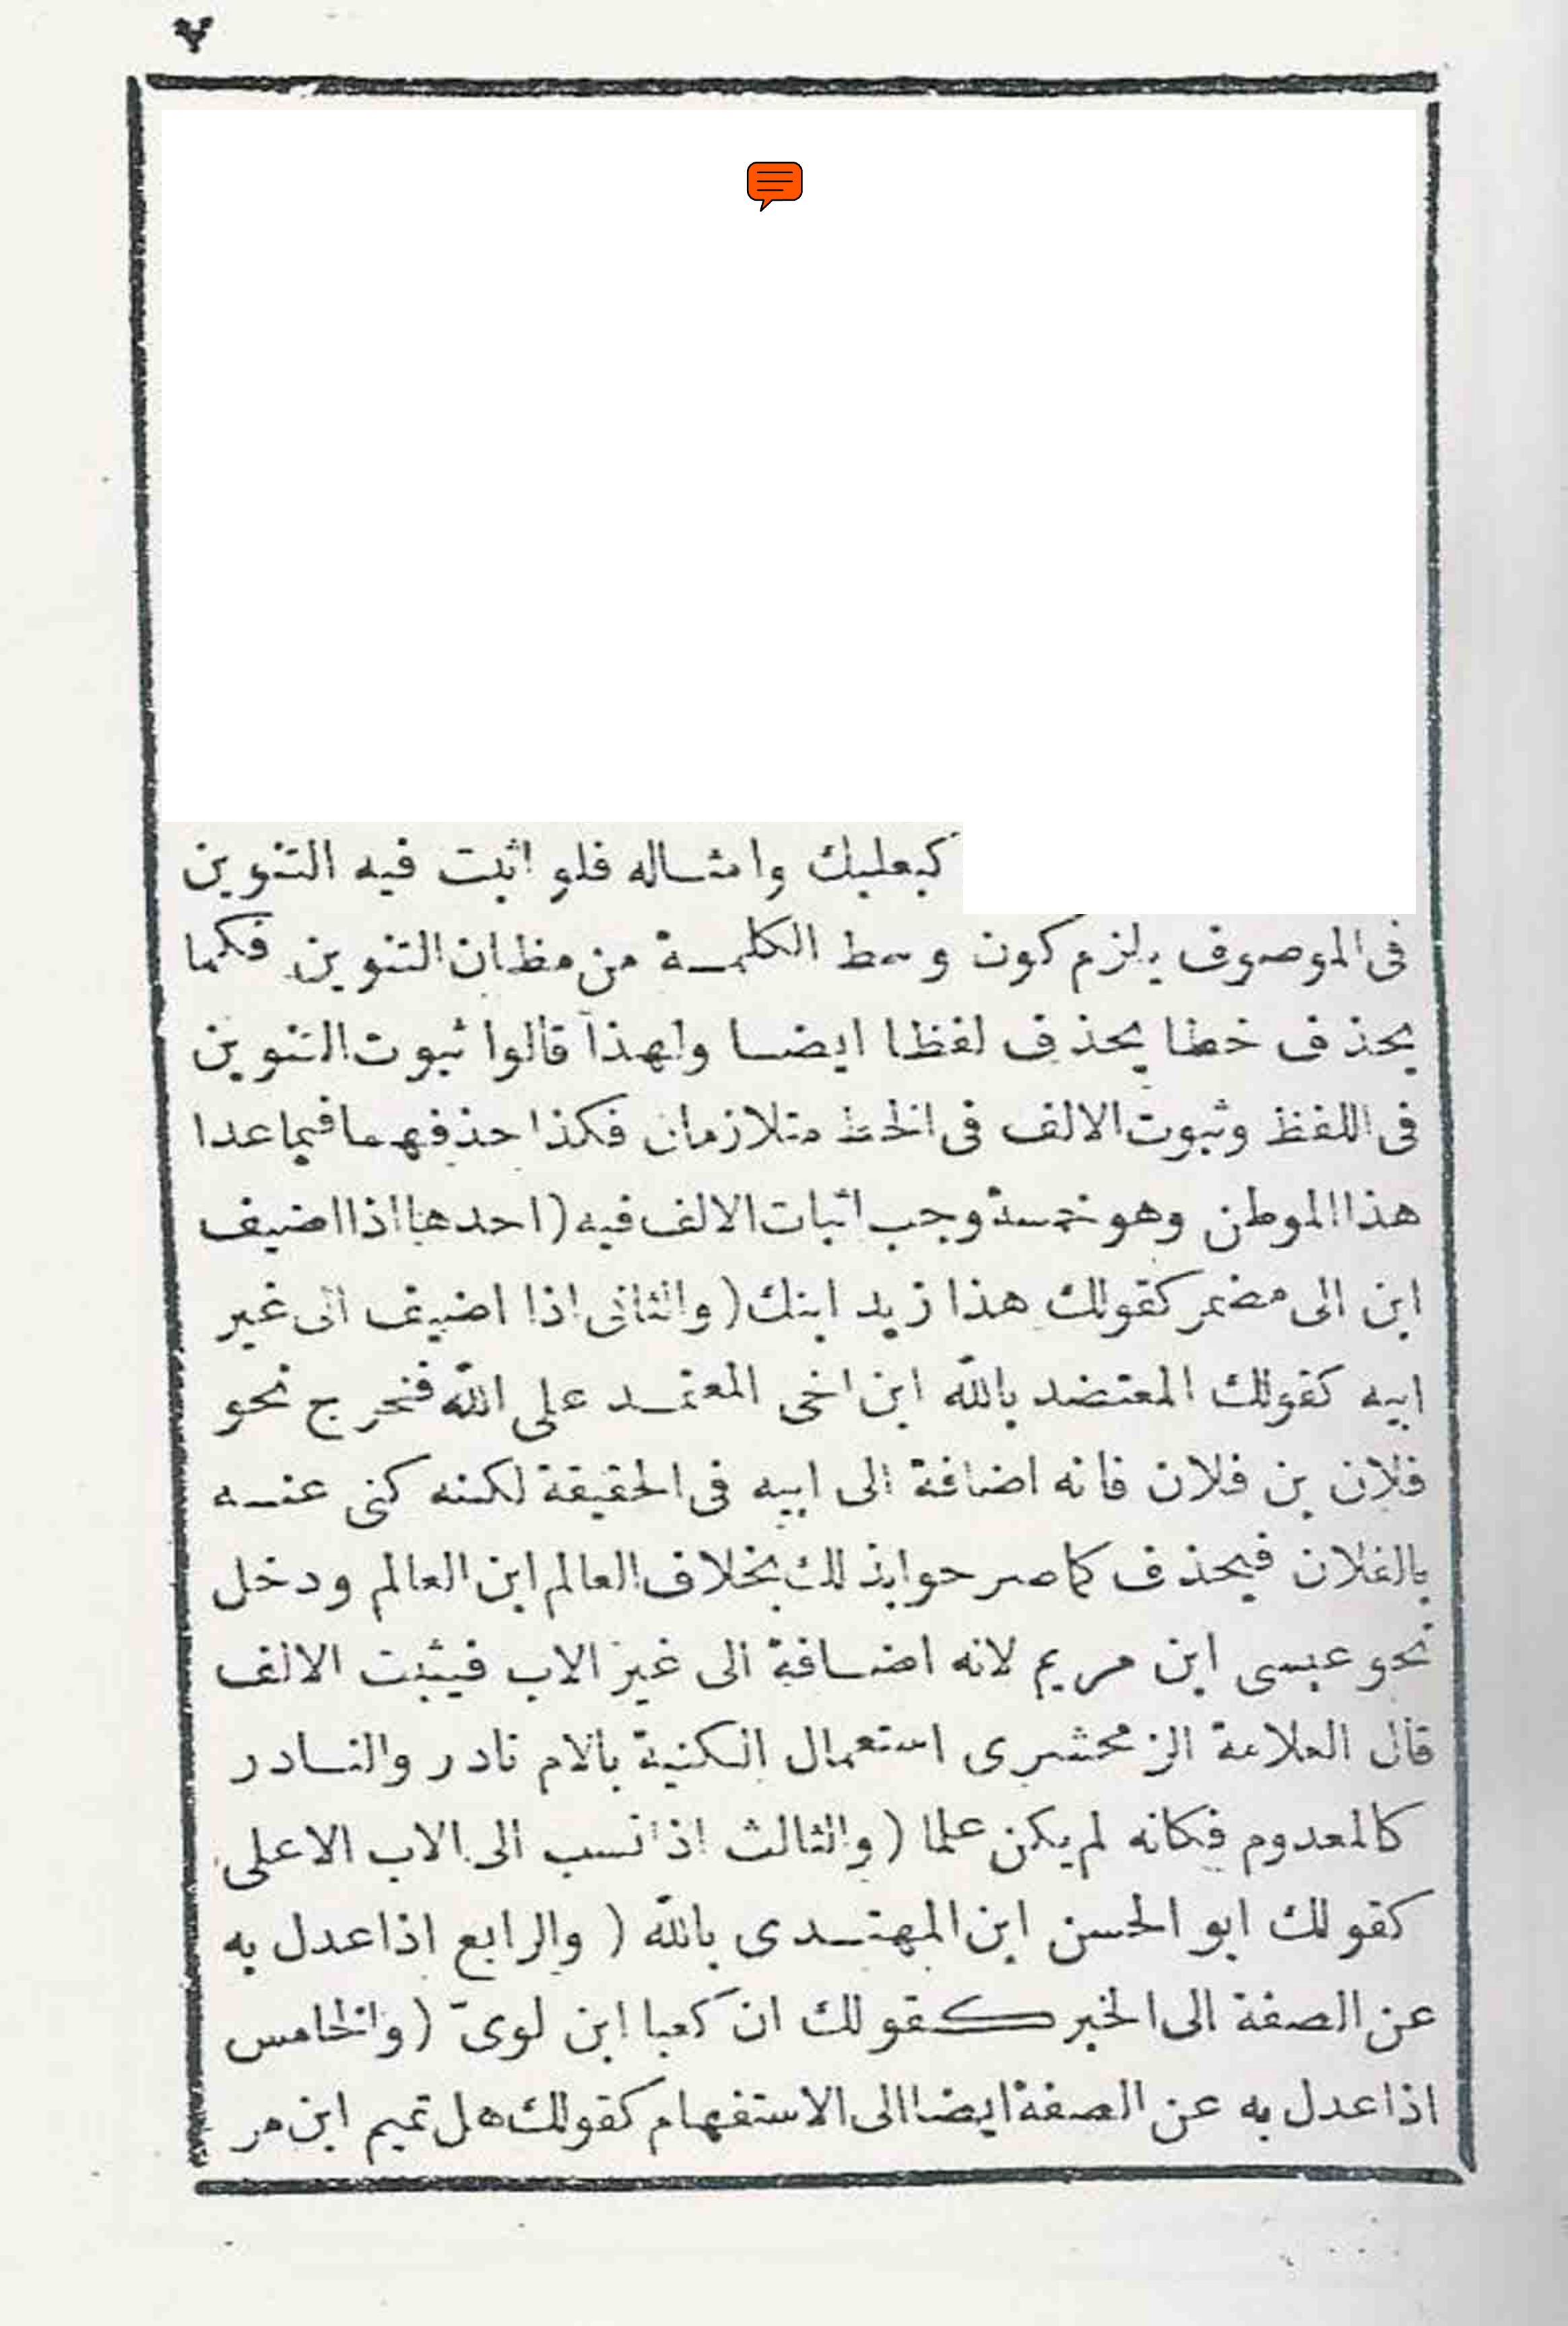 ٧
كبعلبك وامثاله فلو اثبت فيه التنوين
فى الموصوف يلزم كون وسط الكلمة من مظان التنوين فكما
يحذف خطا يحذف لفظا ايضا ولهذا قالوا ثبوت التنوين
فى اللفظ وثبوت الالف فى الخط متلازمان فكذا حذفهما فيما عدا
هذا الموطن وهو خمسة وجب اثبات الالف فيه (احدها اذا اضيف
ابن الى مضمر كقولك هذا زيد ابنك (والثانى اذا اضيف الى غير
ابيه كقولك المعتضد بالله ابن اخى المعتمد على الله فتخرج نحو
فلان بن فلان فانه اضافة الى ابيه فى الحقيقة لكنه كنى عنه
بالفلان فيحذف كما صرحوا بذلك بخلاف العالم ابن العالم ودخل
نحو عيسى ابن مريم لانه اضافة الى غير الاب فيثبت الالف
قال العلامة الزمحشرى استعمال الكنية بالام نادر والنادر
كالمعدوم فكانه لم يكن علما (والثالث اذا نسب الى الاب الاعلى
كقولك ابو الحسن ابن المهتدى بالله (والرابع اذا عدل به
عن الصفة الى الخبر كقولك ان كعبا ابن لوىّ (والخامس
اذا عدل به عن الصفة ايضا الى الاستفهام كقولك هل تميم ابن مر